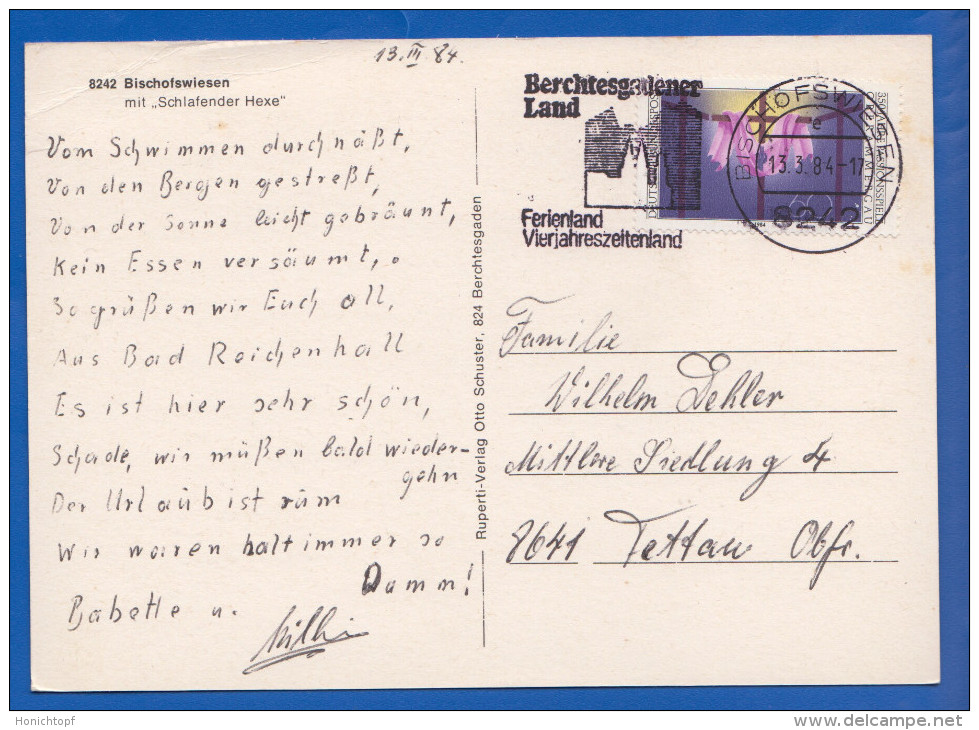 13.III.84.
8242 Bischofswiesen
mit „Schlafender Hexe"
Vom Schwimmen durchnäßt,
Von den Bergen gestreßt,
Von der Sonne leicht gebräunt,
Kein Essen versäumt,.
So grüßen wir Euch all,
Aus Bad Reichenhall
Es ist hier sehr schön,
Schade, wir müßen bald wieder-
gehn
Der Urlaub ist rüm
Wir waren halt immer so
Dumm!
Babette u. Willi
Ruperti-Verlag Otto Schuster, 824 Berchtesgaden
Berchtesgadener
Land
Ferienland
Vierjahreszeitenland
BISCHOFSWIESEN
e
13.3.84-17
8242
Familie
Wilhelm Dehler
Mittlere Siedlung 4
8641 Tettau Obfr.
Honichtopf
delcampe.net